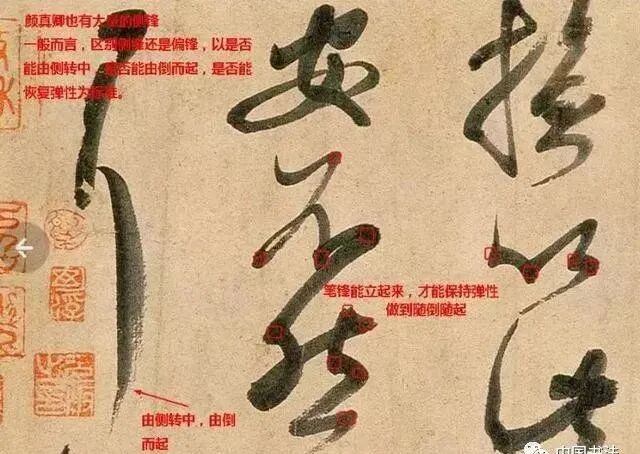 颜真卿也有大量的侧锋
一般而言，区别侧锋还是偏锋，以是否
能由侧转中，是否能由倒而起，是否能
恢复弹性为标准。
拯以此
安不然
耳
笔锋能立起来，才能保持弹性
做到随倒随起
由侧转中，由倒
而起
中国书法